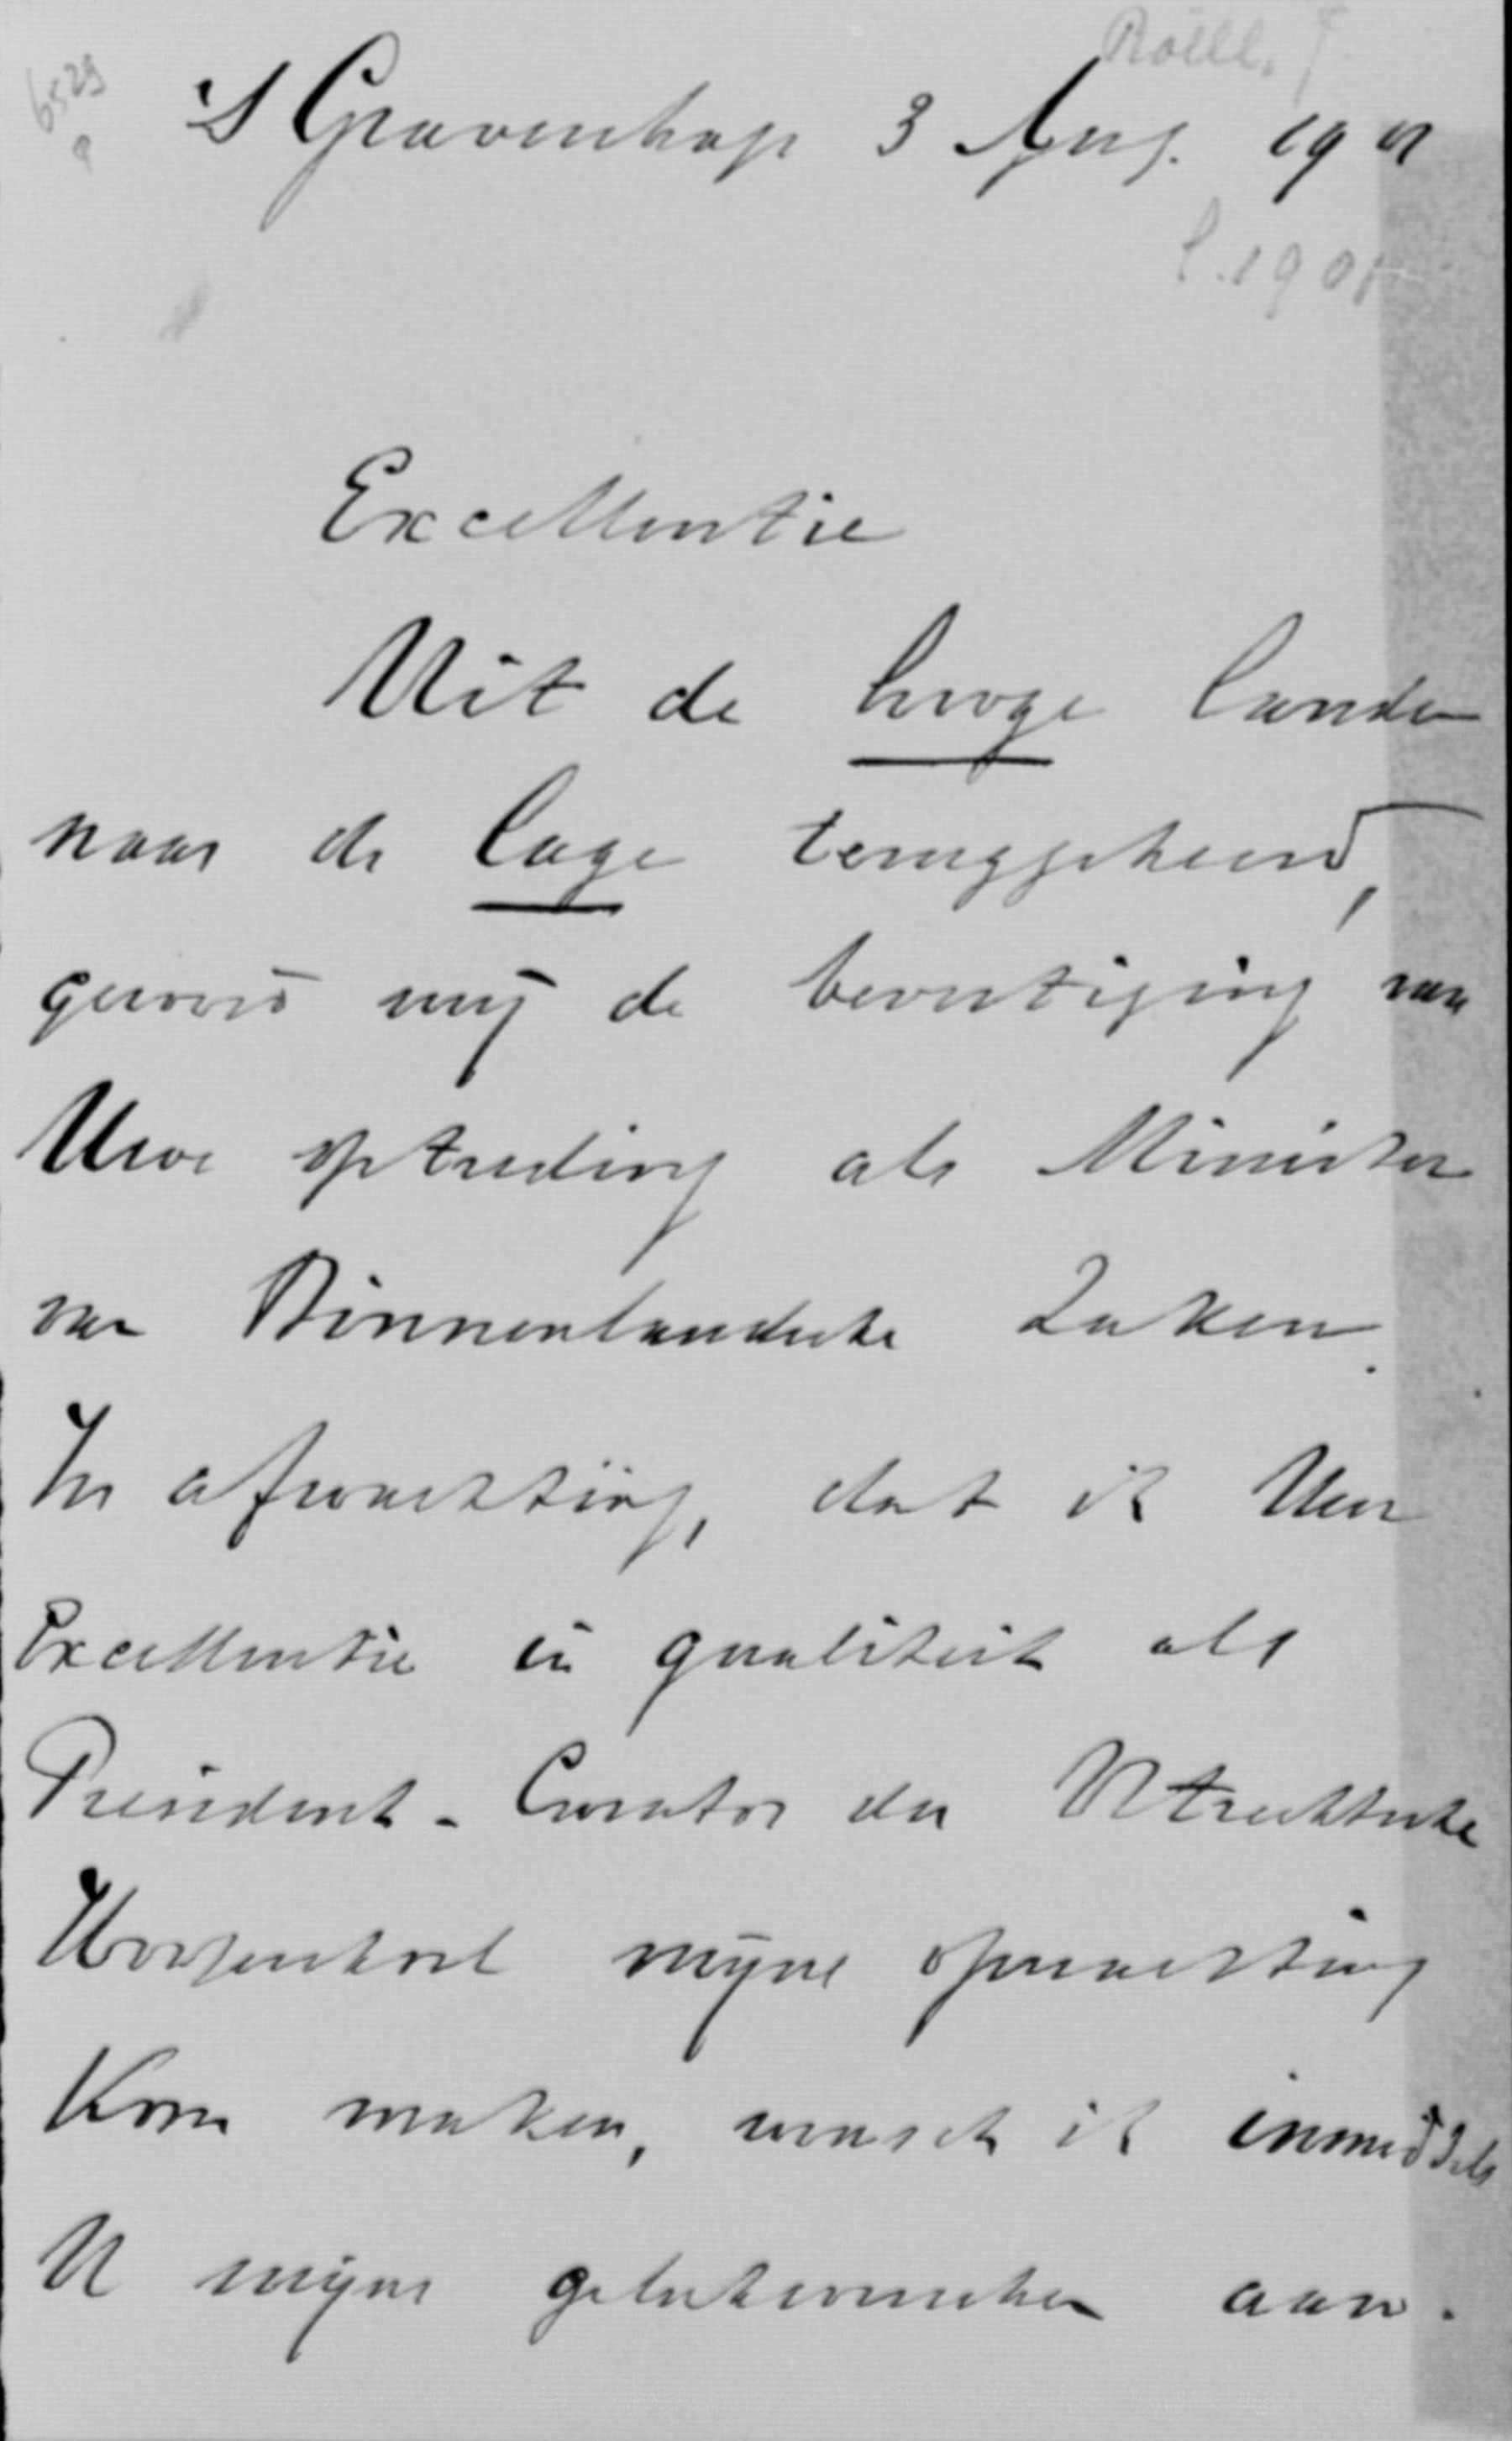 Röell, J.
6529
'S Gravenhage 3 Aug. 1901
1901
Excellentie
Uit de hooge landen
naar de lage teruggekeerd,
gewerd mij de bevestiging van
Uwe optreding als Minister
van Binnenlandsche Zaken.
In afwachting, dat ik Uwe
Excellentie in qualiteit als
President-Curator der Utrechtsche
Hoogeschool mijne opwachting
kom maken, wensch ik inmiddels
U mijne gelukwenschen aan.